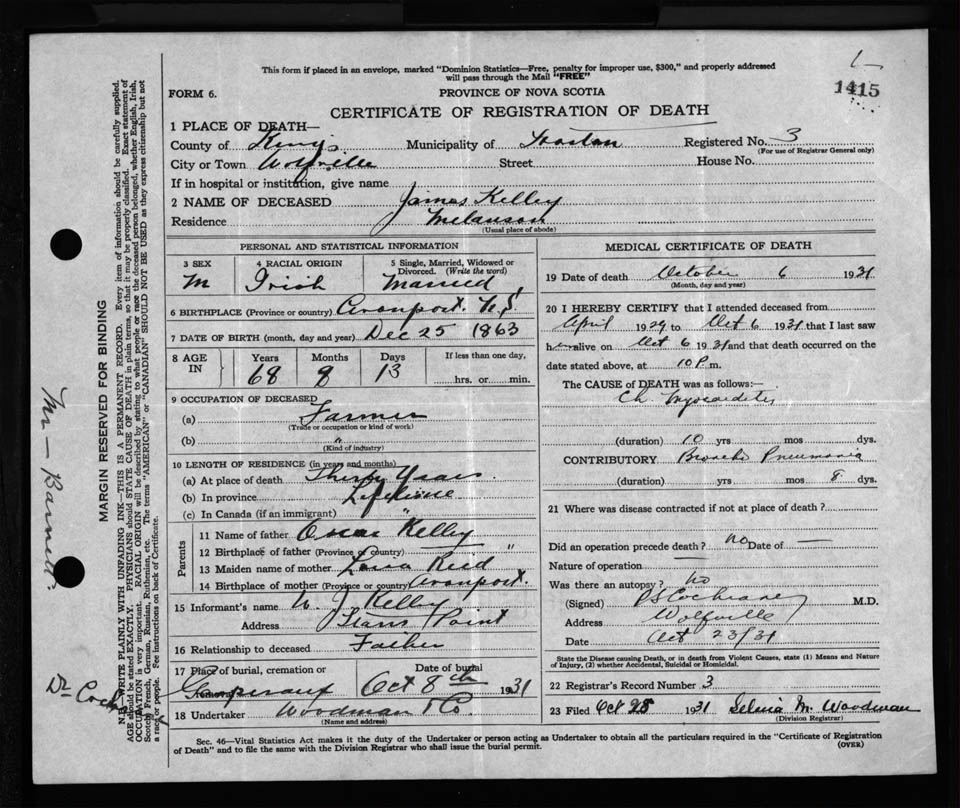 This form if placed in an envelope, marked "Dominion Statistics—Free, penalty for improper use, $300," and properly addressed
will pass through the Mail "FREE"
1415
FORM 6.
PROVINCE OF NOVA SCOTIA
CERTIFICATE OF REGISTRATION OF DEATH
1 PLACE OF DEATH—
County of Kings Municipality of Horton Registered No. 3
(For use of Registrar General only)
City or Town Wolfville Street House No.
If in hospital or institution, give name
2 NAME OF DECEASED James Kelley
Residence Melanson
(Usual place of abode)
PERSONAL AND STATISTICAL INFORMATION
3 SEX 4 RACIAL ORIGIN 5 Single, Married, Widowed or Divorced. (Write the word)
M Irish Married
6 BIRTHPLACE (Province or country) Avonport. N.S.
7 DATE OF BIRTH (month, day and year) Dec 25 1863
8 AGE IN Years Months Days If less than one day,
68 9 13 hrs. or min.
9 OCCUPATION OF DECEASED
(a) Farmer
(Trade or occupation or kind of work)
(b) "
(Kind of industry)
10 LENGTH OF RESIDENCE (in years and months)
(a) At place of death Thirty Years
(b) In province Lifetime
(c) In Canada (if an immigrant) "
Parents
11 Name of father Oscar Kelley
12 Birthplace of father (Province or country) "
13 Maiden name of mother Reid
14 Birthplace of mother (Province or country) Avonport.
15 Informant's name W. J. Kelley
Address Point
16 Relationship to deceased Father
17 Place of burial, cremation or removal Date of burial
Gaspereaux Oct 8th 1931
18 Undertaker Woodman & Co.
(Name and address)
MEDICAL CERTIFICATE OF DEATH
19 Date of death October 6 1931
(Month, day and year)
20 I HEREBY CERTIFY that I attended deceased from
April 1929 to Oct 6 1931 that I last saw
h alive on Oct 6 1931 and that death occurred on the
date stated above, at 10 P. m.
The CAUSE of DEATH was as follows:—
Ch. Myocarditis
(duration) 10 yrs mos dys.
CONTRIBUTORY Broncho Pneumonia
(duration) yrs mos 8 dys.
21 Where was disease contracted if not at place of death?
Did an operation precede death? no Date of —
Nature of operation —
Was there an autopsy? no
(Signed) Cochrane M.D.
Address Wolfville
Date Oct 23/31
State the Disease causing Death, or in death from Violent Causes, state (1) Means and Nature
of Injury, (2) whether Accidental, Suicidal or Homicidal.
22 Registrar's Record Number 3
23 Filed Oct 25 1931 Selena M. Woodman
(Division Registrar)
Sec. 46—Vital Statistics Act makes it the duty of the Undertaker or person acting as Undertaker to obtain all the particulars required in the "Certificate of Registration
of Death" and to file the same with the Division Registrar who shall issue the burial permit.
(OVER)
MARGIN RESERVED FOR BINDING
N.B.—WRITE PLAINLY WITH UNFADING INK—THIS IS A PERMANENT RECORD. Every item of information should be carefully supplied.
AGE should be stated EXACTLY. PHYSICIANS should STATE CAUSE OF DEATH in plain terms, so that it may be properly classified. Exact statement of
OCCUPATION is very important. RACIAL ORIGIN will be described by stating to what people or race the deceased person belonged, whether English, Irish,
Scotch, French, German, Russian, Ruthenian, etc. The terms "AMERICAN" or "CANADIAN" SHOULD NOT BE USED as they express citizenship but not
a race or people. See instructions on back of Certificate.